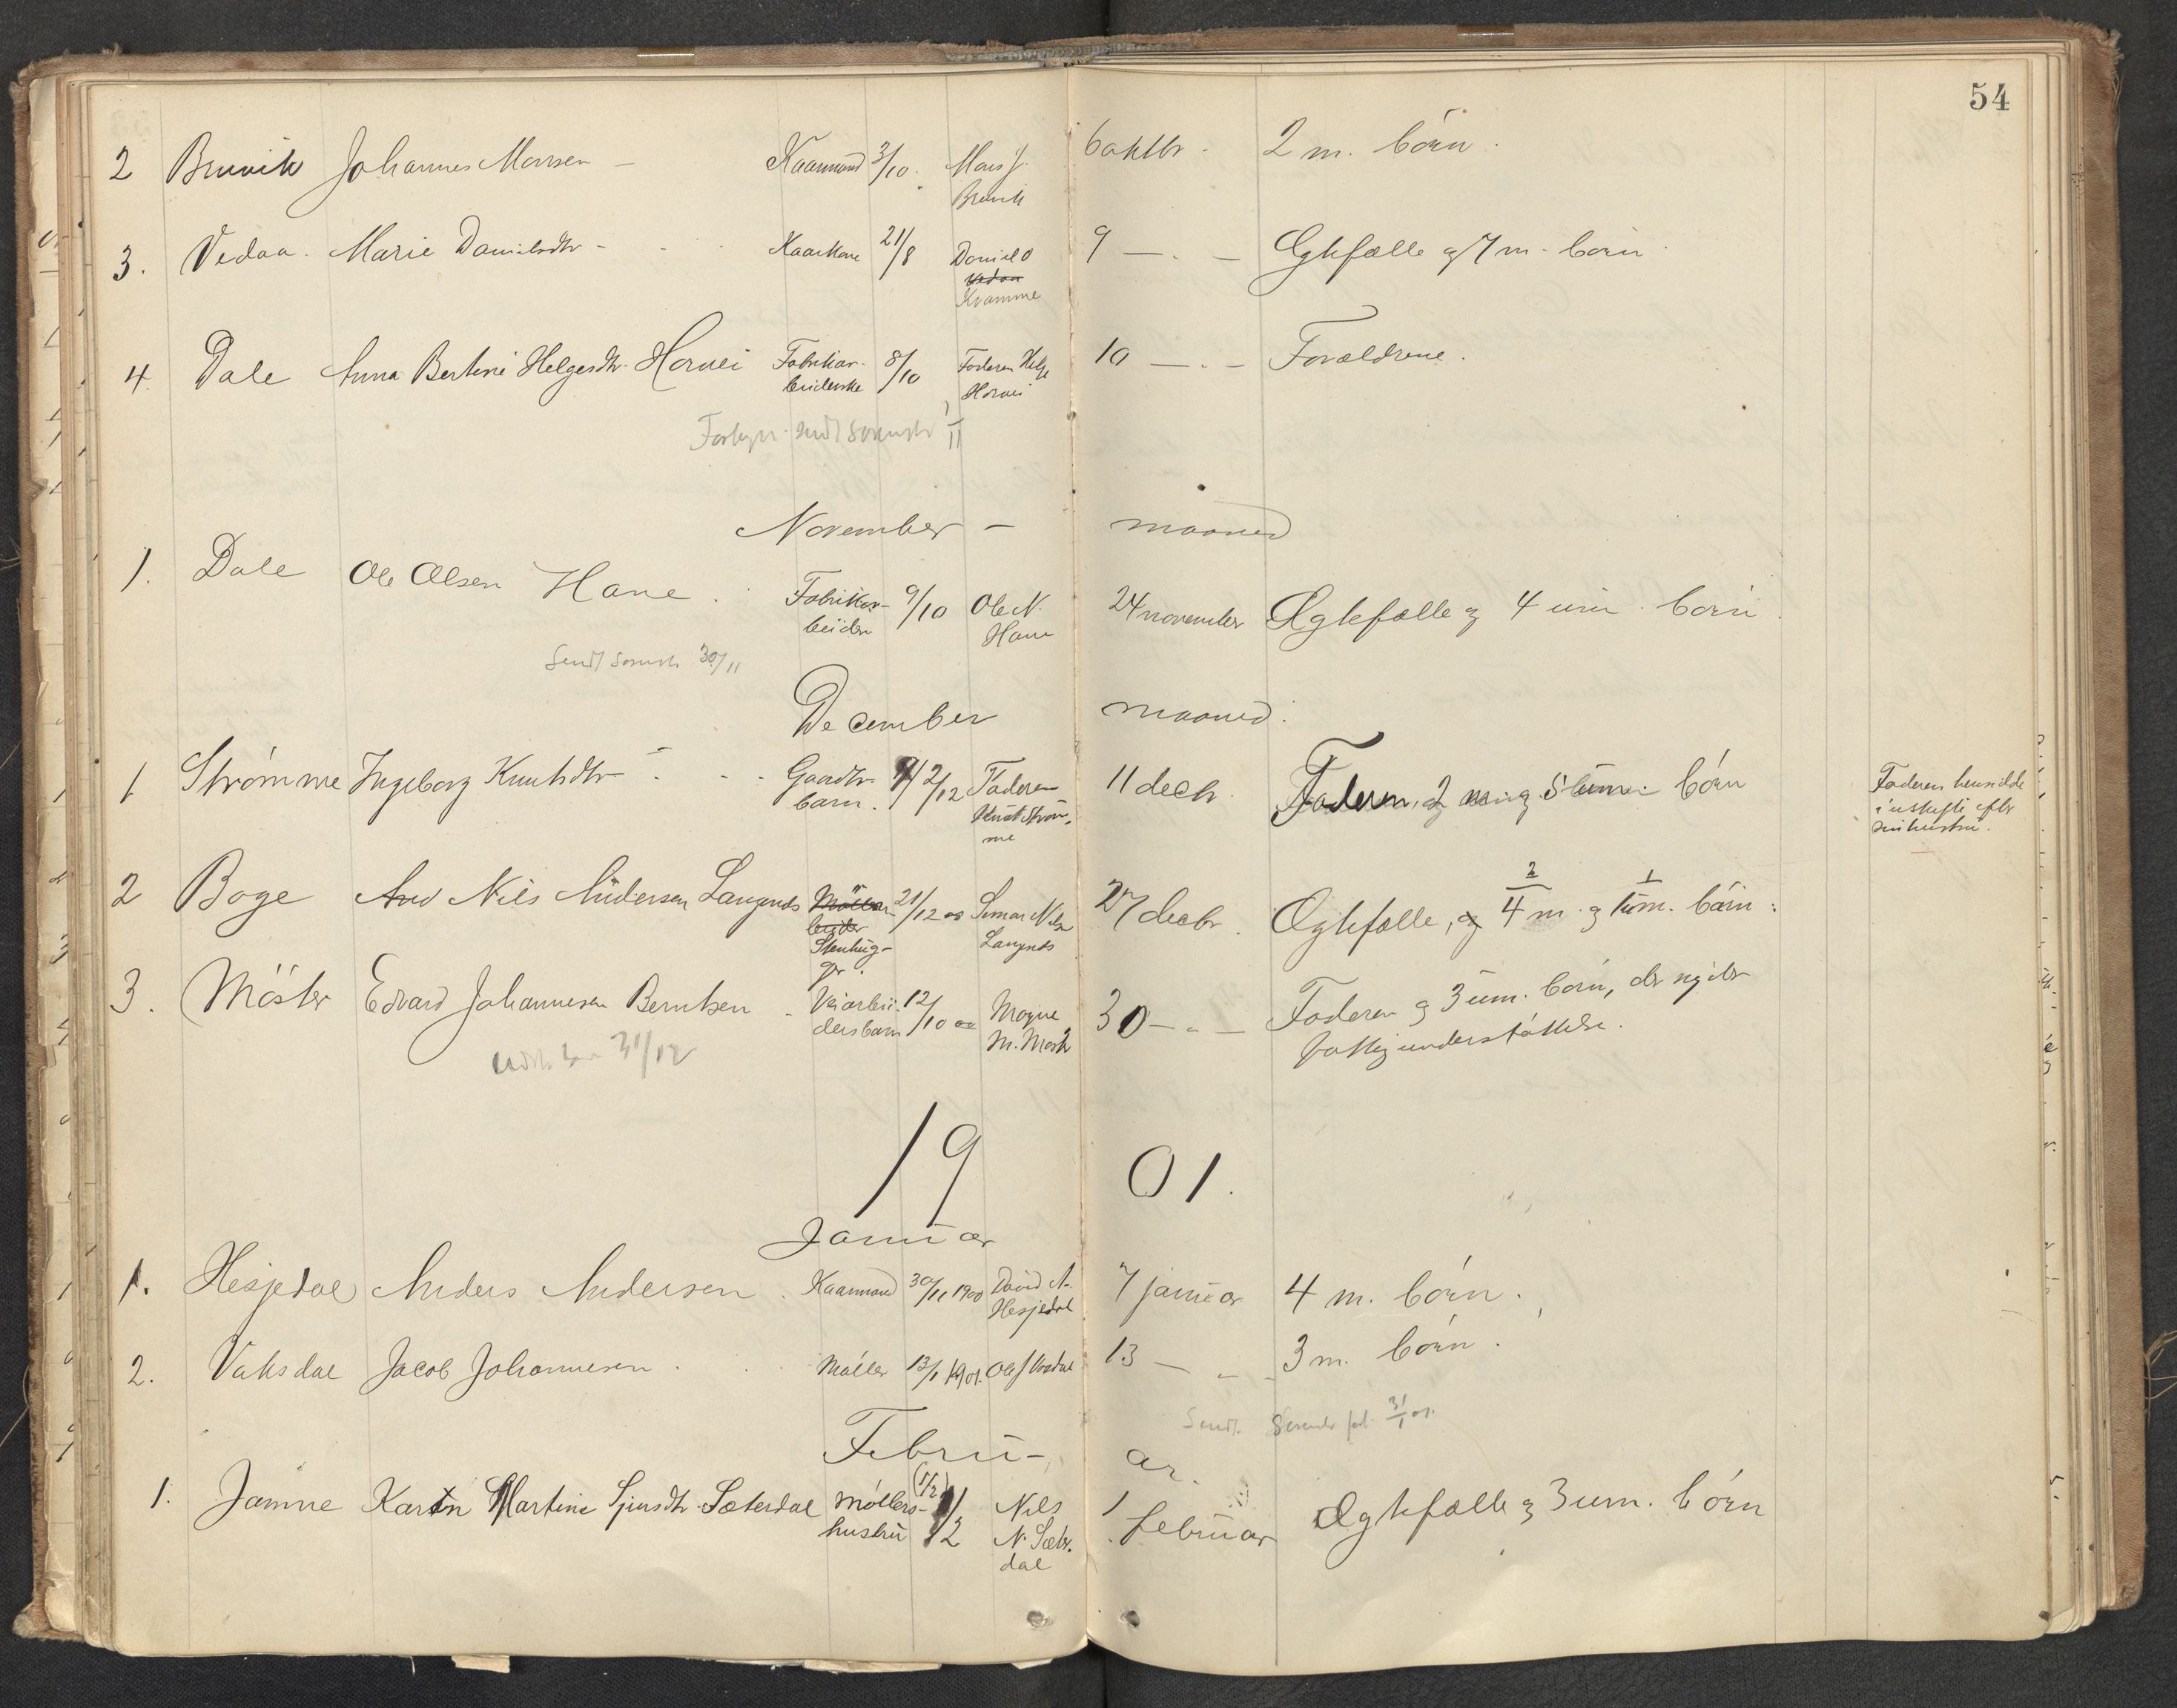 54
2 Bruvik Johannes Monsen - Kaarmand 3/10. Mons J. 6 oktbr. 2 m. börn.
Bruvik
3. Vedaa. Marie Danielsdtr - Kaarkone 21/8 Daniel O 9 - . - Ægtefælle og 7 m. börn.
Vedaa
Kvamme
4. Dale Anna Bertine Helgesdtr. Horvei Fabrikar- 8/10 Faderen Helge 10 - . - Forældrene.
beiderske Horvei
sendt sorenskr /11
November - maaned
1. Dale Ole Olsen Hane. Fabrikar- 9/10 Ole N. 24 november Ægtefælle og 4 um. börn.
beider Hane
Sendt sorensk. 30/11
December maaned.
1 Strömme Ingeborg Knutsdtr - Gaardbr. 2/12 Faderen 11 decbr. Faderen, 2 m. og 5 um. börn Faderen hensidder
barn. Knut Ström- i uskifte efter
me sin hustru.
2 Boge And Nils Andersen Langnes 21/12 00 Nilsen 27 decbr. Ægtefælle, og 4 m. og um. börn.
2 1
beider Langnes
Stenhug-
ger.
3. Möster Edvard Johannesen Berntsen - Veiarbei- 12/10 00 Mogne 30 - " - Faderen og 3 um. börn, der nyder
dersbarn M. Möst. fattigunderstöttelse.
31/12
19 01.
Januar
1. Hesjedal Anders Andersen. Kaarmand 30/11 1900 David A. 7 januar 4 m. börn.
Hesjedal
2. Vaksdal Jacob Johannesen. Möller 13/1 1901. Ole J. Vaksdal 13 - " - 3 m. börn.
Sendt 31/1 01.
Febru- ar.
(1/2)
1. Jamne Karin Martine Sjursdtr. Sæterdal möllers- 1/2 Nils 1 februar Ægtefælle og 3 um. börn
hustru N. Sæter-
dal